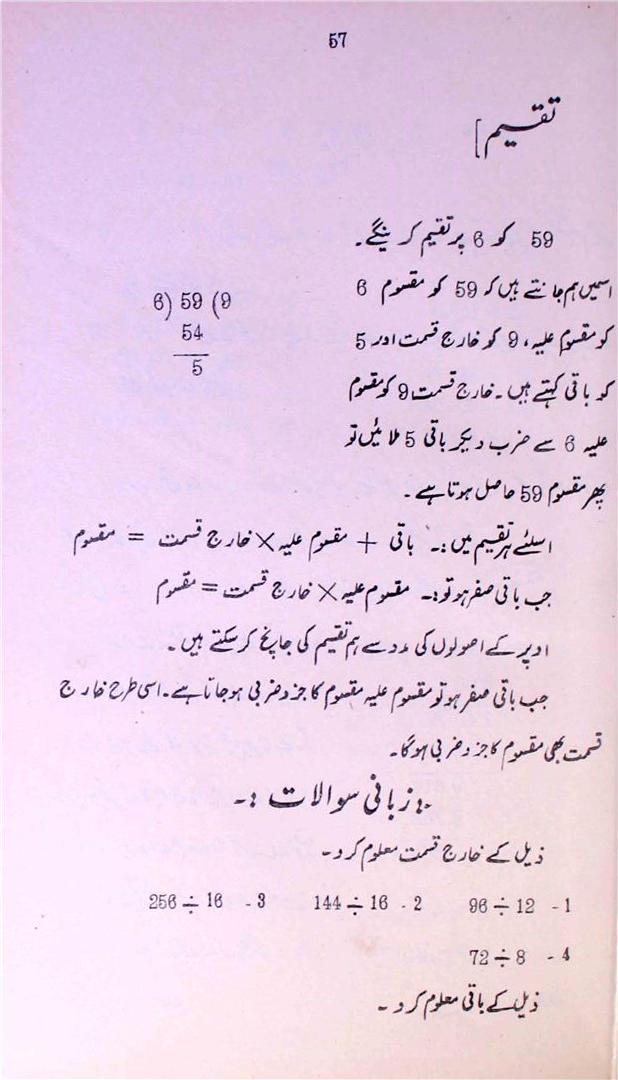 57
تقسیم]
59 کو 6 پر تقیم کرینگے۔
اسمیں ہم جانتے ہیں کہ 59 کو مقسوم 6
6) 59 (9
کو مقسوم علیہ، 9 کو خارج قسمت اور 5
54
5
کو باقی کہتے ہیں۔ خارج قسمت 9 کو مقسوم
علیہ 6 سے ضرب دیکر باقی 5 ملائیں تو
پھر مقسوم 59 حاصل ہوتا ہے۔
اسلئے ہر تقیم میں :۔ باقی + مقسوم علیہ × خارج قسمت = مقسوم
جب باقی صفر ہو تو :۔ مقسوم علیہ × خارج قسمت = مقسوم
اوپر کے اصولوں کی مدد سے ہم تقیم کی جانچ کر سکتے ہیں۔
جب باقی صفر ہو تو مقسوم علیہ مقسوم کا جزو ضربی ہو جاتا ہے۔ اسی طرح خارج
قسمت بھی مقسوم کا جزو ضربی ہوگا۔
۔: زبانی سوالات :۔
ذیل کے خارج قسمت معلوم کرو۔
1- 96 ÷ 12 2- 144 ÷ 16 3- 256 ÷ 16
4- 72 ÷ 8
ذیل کے باقی معلوم کرو۔